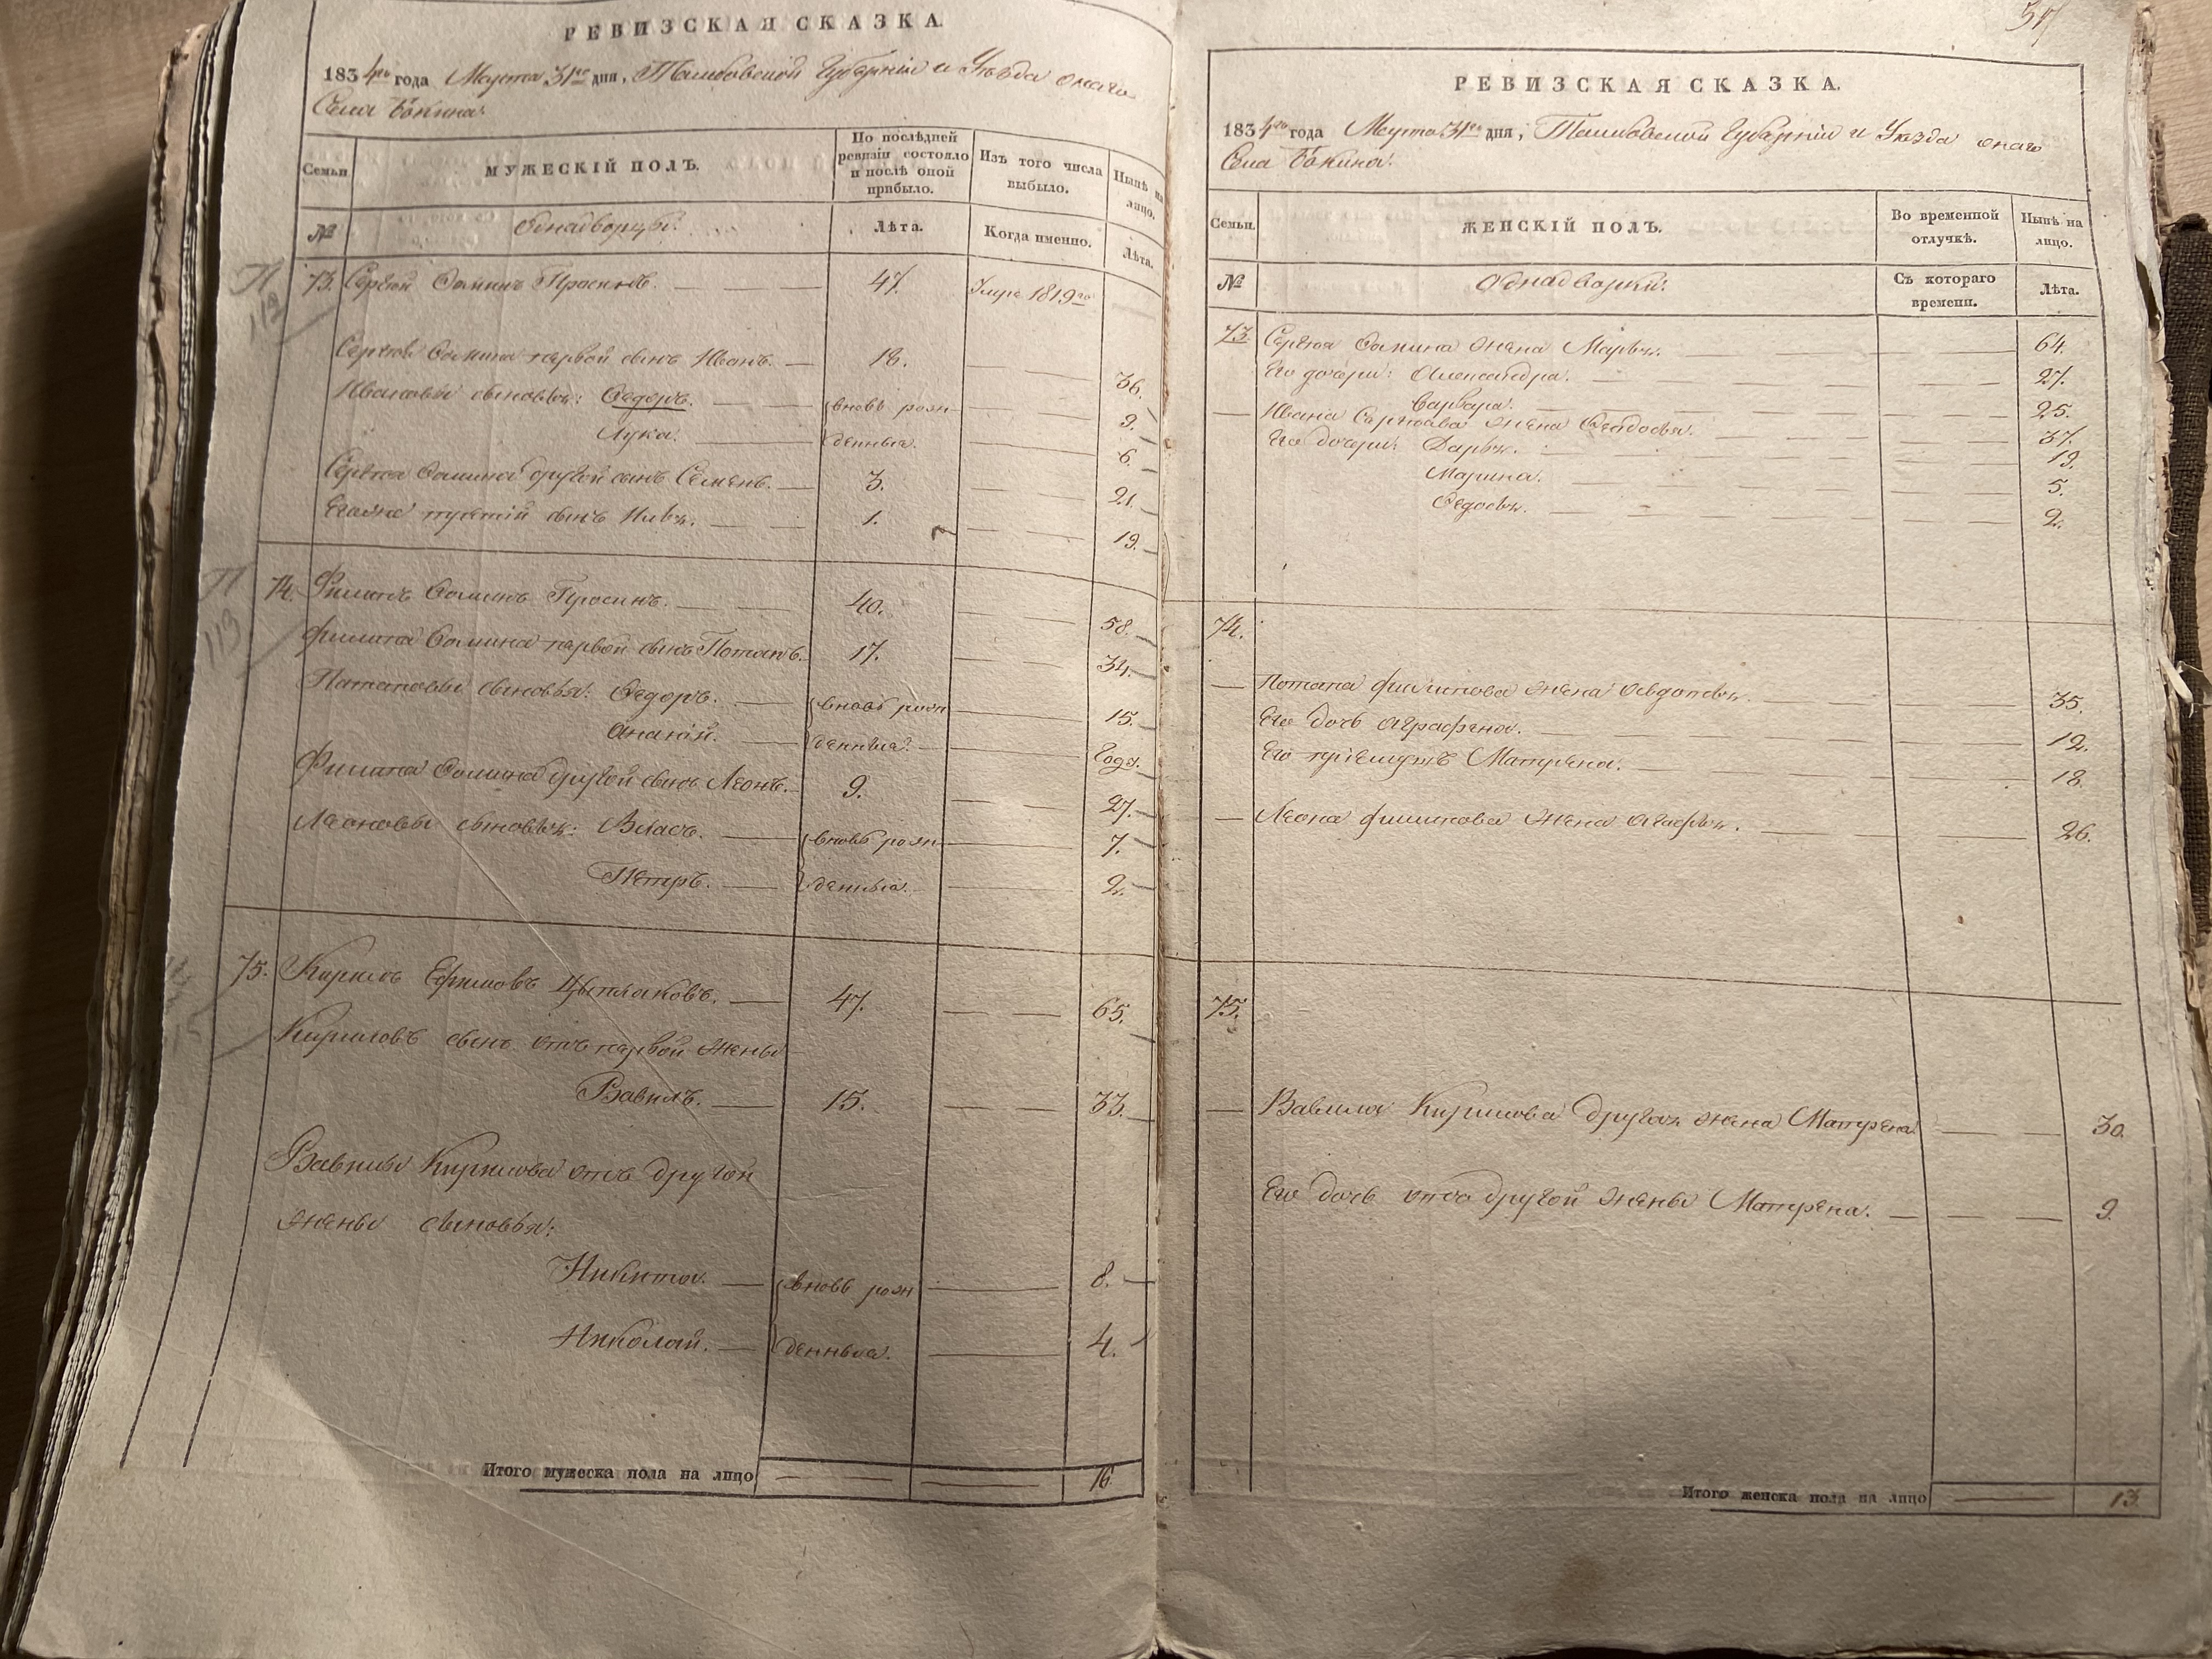 РЕВИЗСКАЯ СКАЗКА.
1834го года Марта 31го дня, Тамбовской Губерніи и Уѣзда онаго
Села Бокина.
Семьи.
МУЖЕСКІЙ ПОЛЪ.
По послѣдней ревизіи состояло и послѣ оной прибыло.
Изъ того числа выбыло.
Нынѣ на лицо.
№
Однадворцы.
Лѣта.
Когда именно.
Лѣта.
П
112
73. Сергѣй Ѳоминъ 47. Умре 1819го
Сергѣя Ѳомина первой сынъ Иванъ. 18. 36.
Ивановы сыновья: Ѳедоръ. вновь рож 9.
Лука. денныя. 6.
Сергѣя Ѳомина другой сынъ Семенъ. 3. 21.
Егоже третій сынъ 1. 19.
П
113
74. Филипъ Ѳоминъ 40. 58.
Филипа Ѳомина первой сынъ Потапъ. 17. 34.
Потаповы сыновья: Ѳедоръ. вновь рож 15.
Ананій. денныя. Года.
Филипа Ѳомина другой сынъ Леонъ. 9. 27.
Леоновы сыновья: Власъ. вновь рож 7.
Петръ. денныя. 2.
75. Кирилъ Ефимовъ 47. 65.
Кириловъ сынъ отъ первой жены
Вавилъ. 15. 33.
Вавилы Кирилова отъ другой
жены сыновья:
Никита. вновь рож 8.
Николай. денныя. 4.
Итого мужеска пола на лицо 16.
РЕВИЗСКАЯ СКАЗКА.
1834го года Марта 31го дня, Тамбовской Губерніи и Уѣзда онаго
Села Бокина.
Семьи.
ЖЕНСКІЙ ПОЛЪ.
Во временной отлучкѣ.
Нынѣ на лицо.
№
Однадворки.
Съ котораго времени.
Лѣта.
73. Сергѣя Ѳомина жена Марья. 64.
Его дочери: Александра. 27.
Варвара. 25.
Ивана Сергѣева жена Ѳеодосья. 37.
Его дочери: Дарья. 13.
Марина. 5.
Ѳедосья. 2.
74.
Потапа Филипова жена Авдотья. 35.
Его дочь Аграфена. 12.
Его пріемышъ Матрена. 18.
Леона Филипова жена Агафья. 26.
75.
Вавила Кирилова другая жена Матрена 30.
Его дочь отъ другой жены Матрена. 9.
Итого женска пола на лицо 13.